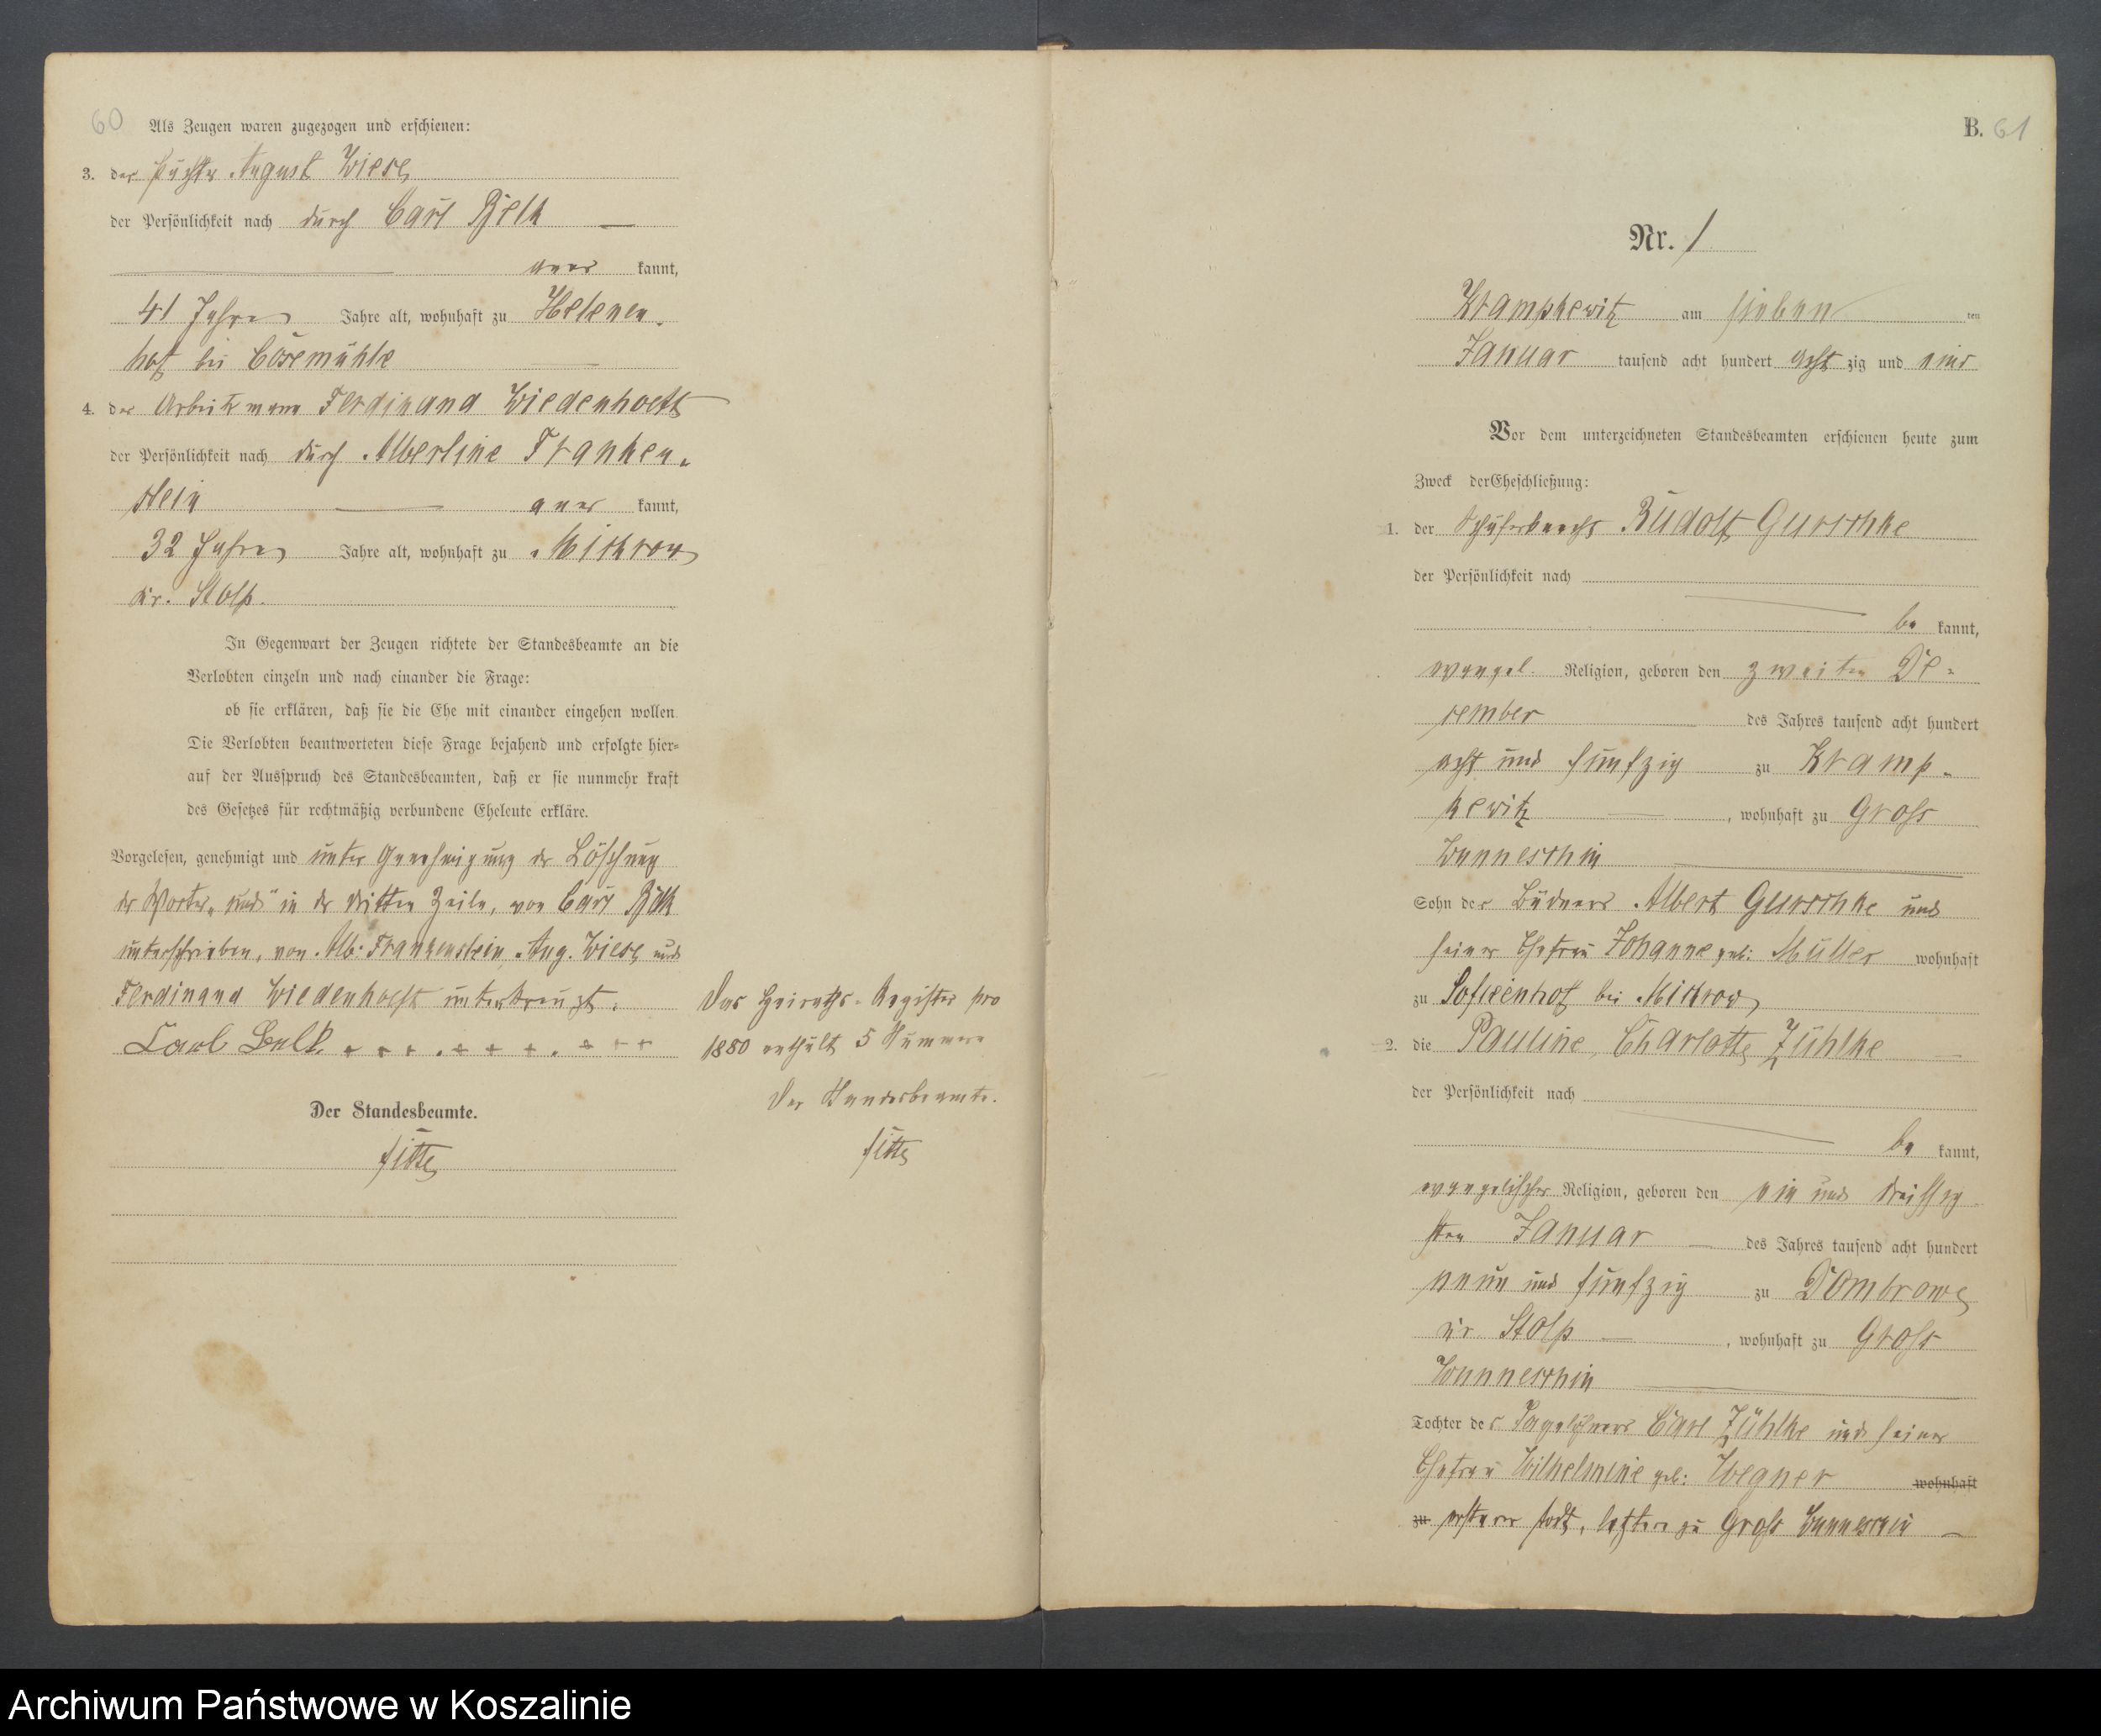 60
Als Zeugen waren zugezogen und erschienen:
3. der Pächter August Wiese
der Persönlichkeit nach durch Carl
aner kannt,
41 Jahre Jahre alt, wohnhaft zu Helenen-
hof bei Cösemühle
4. der Arbeitsmann Ferdinand Wiedenhoeft
der Persönlichkeit nach durch Albertine Franken-
stein aner kannt,
32 Jahre Jahre alt, wohnhaft zu Mickrow
Kr. Stolp.
In Gegenwart der Zeugen richtete der Standesbeamte an die
Verlobten einzeln und nach einander die Frage:
ob sie erklären, daß sie die Ehe mit einander eingehen wollen.
Die Verlobten beantworteten diese Frage bejahend und erfolgte hier-
auf der Ausspruch des Standesbeamten, daß er sie nunmehr kraft
des Gesetzes für rechtmäßig verbundene Eheleute erkläre.
Vorgelesen, genehmigt und unter Genehmigung der Löschung
des Wortes „und" in der dritten Zeile, von Carl
unterschrieben, von Alb. Frankenstein, Aug. Wiese und
Ferdinand Wiedenhoeft unterkreuzt.
Carl + + + . + + + . + + +
Der Standesbeamte.
Das Heiraths-Register pro
1880 enthält 5 Nummern
Der Standesbeamte.
B. 61
Nr. 1
Krampkewitz am sieben ten
Januar tausend acht hundert acht zig und eins
Vor dem unterzeichneten Standesbeamten erschienen heute zum
Zweck der Eheschließung:
1. der Schäferknecht Rudolf Gurschke
der Persönlichkeit nach
be kannt,
evangel. Religion, geboren den zweiten De-
cember des Jahres tausend acht hundert
acht und fünfzig zu Kramp-
kewitz , wohnhaft zu Gross
Wunneschin
Sohn des Büdners Albert Gurschke und
seiner Ehefrau Johanne geb: Müller wohnhaft
zu Sofienhof bei Mickrow
2. die Pauline, Charlotte Zühlke
der Persönlichkeit nach
be kannt,
evangelischer Religion, geboren den ein und dreissig-
sten Januar des Jahres tausend acht hundert
neun und fünfzig zu Dombrowe
Kr Stolp , wohnhaft zu Gross
Wunneschin
Tochter des Tagelöhners Carl Zühlke und seiner
Ehefrau Wilhelmine geb: Wegner wohnhaft
zu ersterer todt, letztere zu Gross Wunneschin
Archiwum Państwowe w Koszalinie